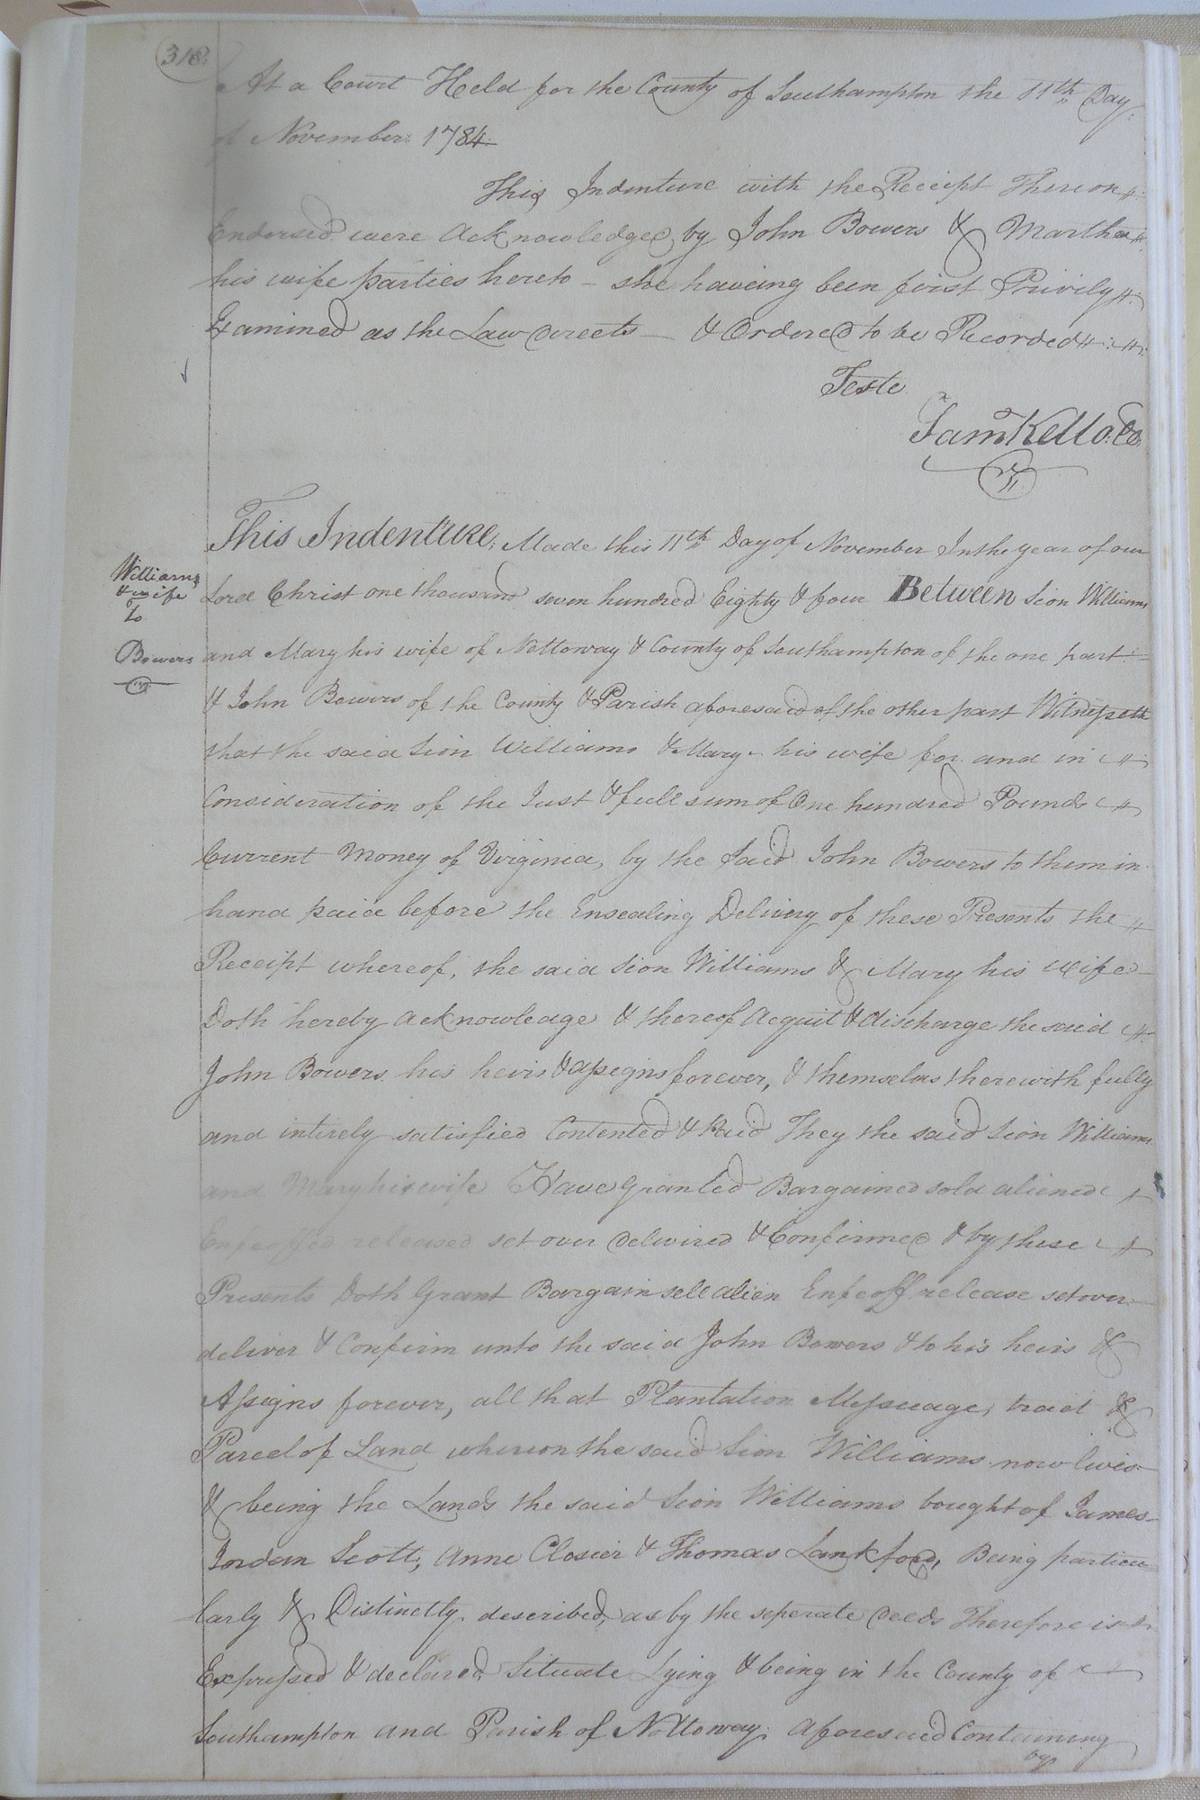 318
At a Court Held for the County of Southampton the 11th Day
of November 1784
This Indenture with the Receipt Thereon
Endorsed were Acknowledged by John Bowers & Martha
his wife parties hereto - she haveing been first Privily
Examined as the Law directs - & Ordered to be Recorded
Teste
Sam Kello. Co
This Indenture, Made this 11th Day of November In the year of our
Lord Christ one thousand seven hundred Eighty & four Between Sion Williams
Williams
& wife
to
Bowers
and Mary his wife of Nottoway & County of Southampton of the one part
& John Bowers of the County & Parish aforesaid of the other part Witnesseth
that the said Sion Williams & Mary his wife for and in
Consideration of the Just & full sum of One hundred Pounds
Current Money of Virginia, by the Said John Bowers to them in
hand paid before the Ensealing Delivery of these Presents the
Receipt whereof, the said Sion Williams & Mary his wife
Doth hereby acknowledge & thereof Acquit & discharge the said
John Bowers his heirs & assigns forever, & themselves therewith fully
and intirely satisfied Contented & Paid They the said Sion Williams
and Mary his wife Have Granted Bargained sold aliened
Enfeoffed released set over delivired & Confirmed & by these
Presents Doth Grant Bargain sell alien Enfeoff release set over
deliver & Confirm unto the said John Bowers & to his heirs &
Assigns forever, all that Plantation Messuage, tract &
Parcel of Land whereon the said Sion Williams now lives
& being the Lands the said Sion Williams bought of James
Jordan Scott, Anne Closier & Thomas Lankford, Being particu
larly & Distinctly described, as by the seperate deeds Therefore is
Expressed & declared Situate Lying & being in the County of
Southampton and Parish of Nottoway aforesaid Containing
by